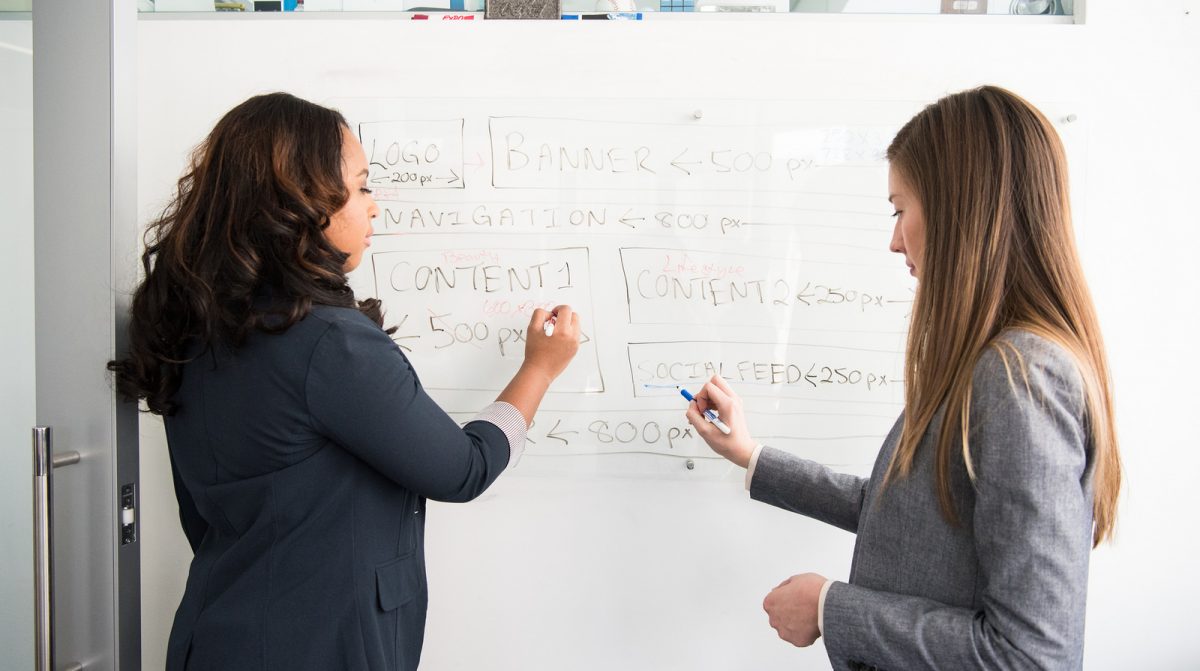 LOGO
200 px
BANNER ← 500 px
NAVIGATION ← 800 px
Beauty
CONTENT 1
← 500 px
Lifestyle
CONTENT 2 ← 250 px →
SOCIAL FEED ← 250 px
R ← 800 px